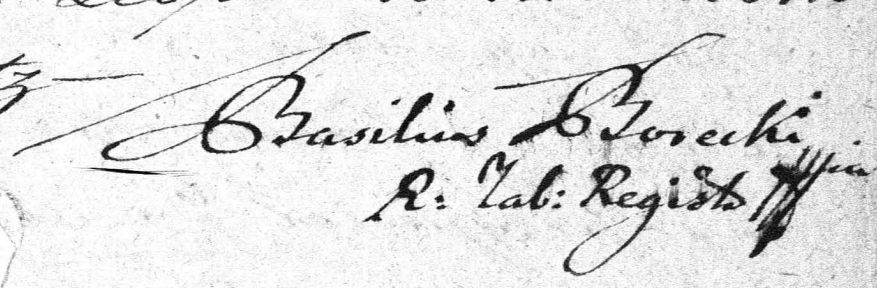 Basilius Borecki
R: Tab: Regists